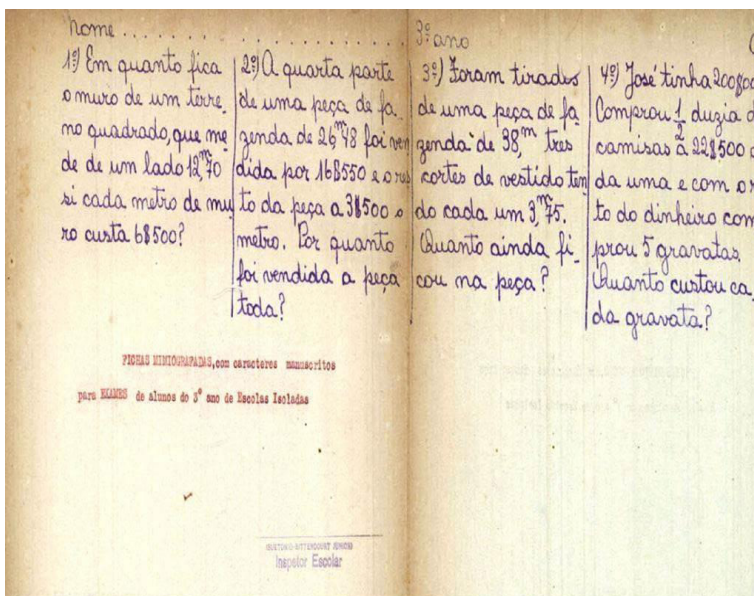 nome . . . . . . . . . . . . . . . . . . . . . . .
3º ano
1º) Em quanto fica
o muro de um terre_
no quadrado, que me_
de de um lado 12,ᵐ70
si cada metro de mu
ro custa 6$500?
2º) A quarta parte
de uma peça de fa_
zenda de 26,ᵐ48 foi ven
dida por 16$550 e o res
to da peça a 3$500 o
metro. Por quanto
foi vendida a peça
toda?
3º) Foram tirados
de uma peça de fa_
zenda de 38,ᵐ tres
cortes de vestido ten_
do cada um 3,ᵐ75.
Quanto ainda fi_
cou na peça?
4º) José tinha 200$00
Comprou 1/2 duzia d
camisas a 22$500 c
da uma e com o r
to do dinheiro com
prou 5 gravatas.
Quanto custou ca_
da gravata?
FICHAS MIMIOGRAFADAS, com caracteres manuscritos
para EXAMES de alunos do 3º ano de Escolas Isoladas
BITTENCOURT
Inspetor Escolar